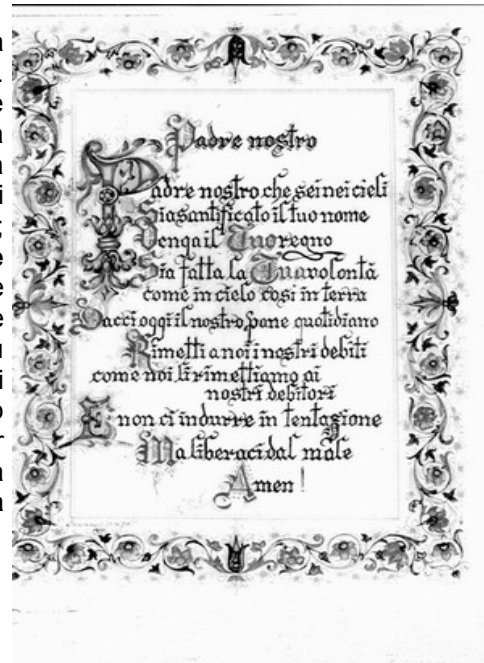 Padre nostro
Padre nostro che sei nei cieli
Sia santificato il tuo nome
Venga il Tuo regno
Sia fatta la Tua volontà
come in cielo così in terra
Dacci oggi il nostro pane quotidiano
Rimetti a noi i nostri debiti
come noi li rimettiamo ai
nostri debitori
E non ci indurre in tentazione
Ma liberaci dal male
Amen!